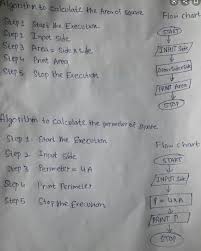 Algorithm to calculate the Area of square
Flow chart
Step 1 Start the Execution
START
Step 2 Input side
INPUT Side
Step 3 Area = Side x side
Step 4 Print Area
PRINT Area
Step 5 Stop the Execution
STOP
Algorithm to calculate the perimeter of square
Step 1 Start the Execution
Flow chart
Step 2 Input Side
START
Step 3 Perimeter = 4A
INPUT Side
Step 4 Print Perimeter
P = 4xA
Step 5 Stop the Execution
PRINT P
STOP